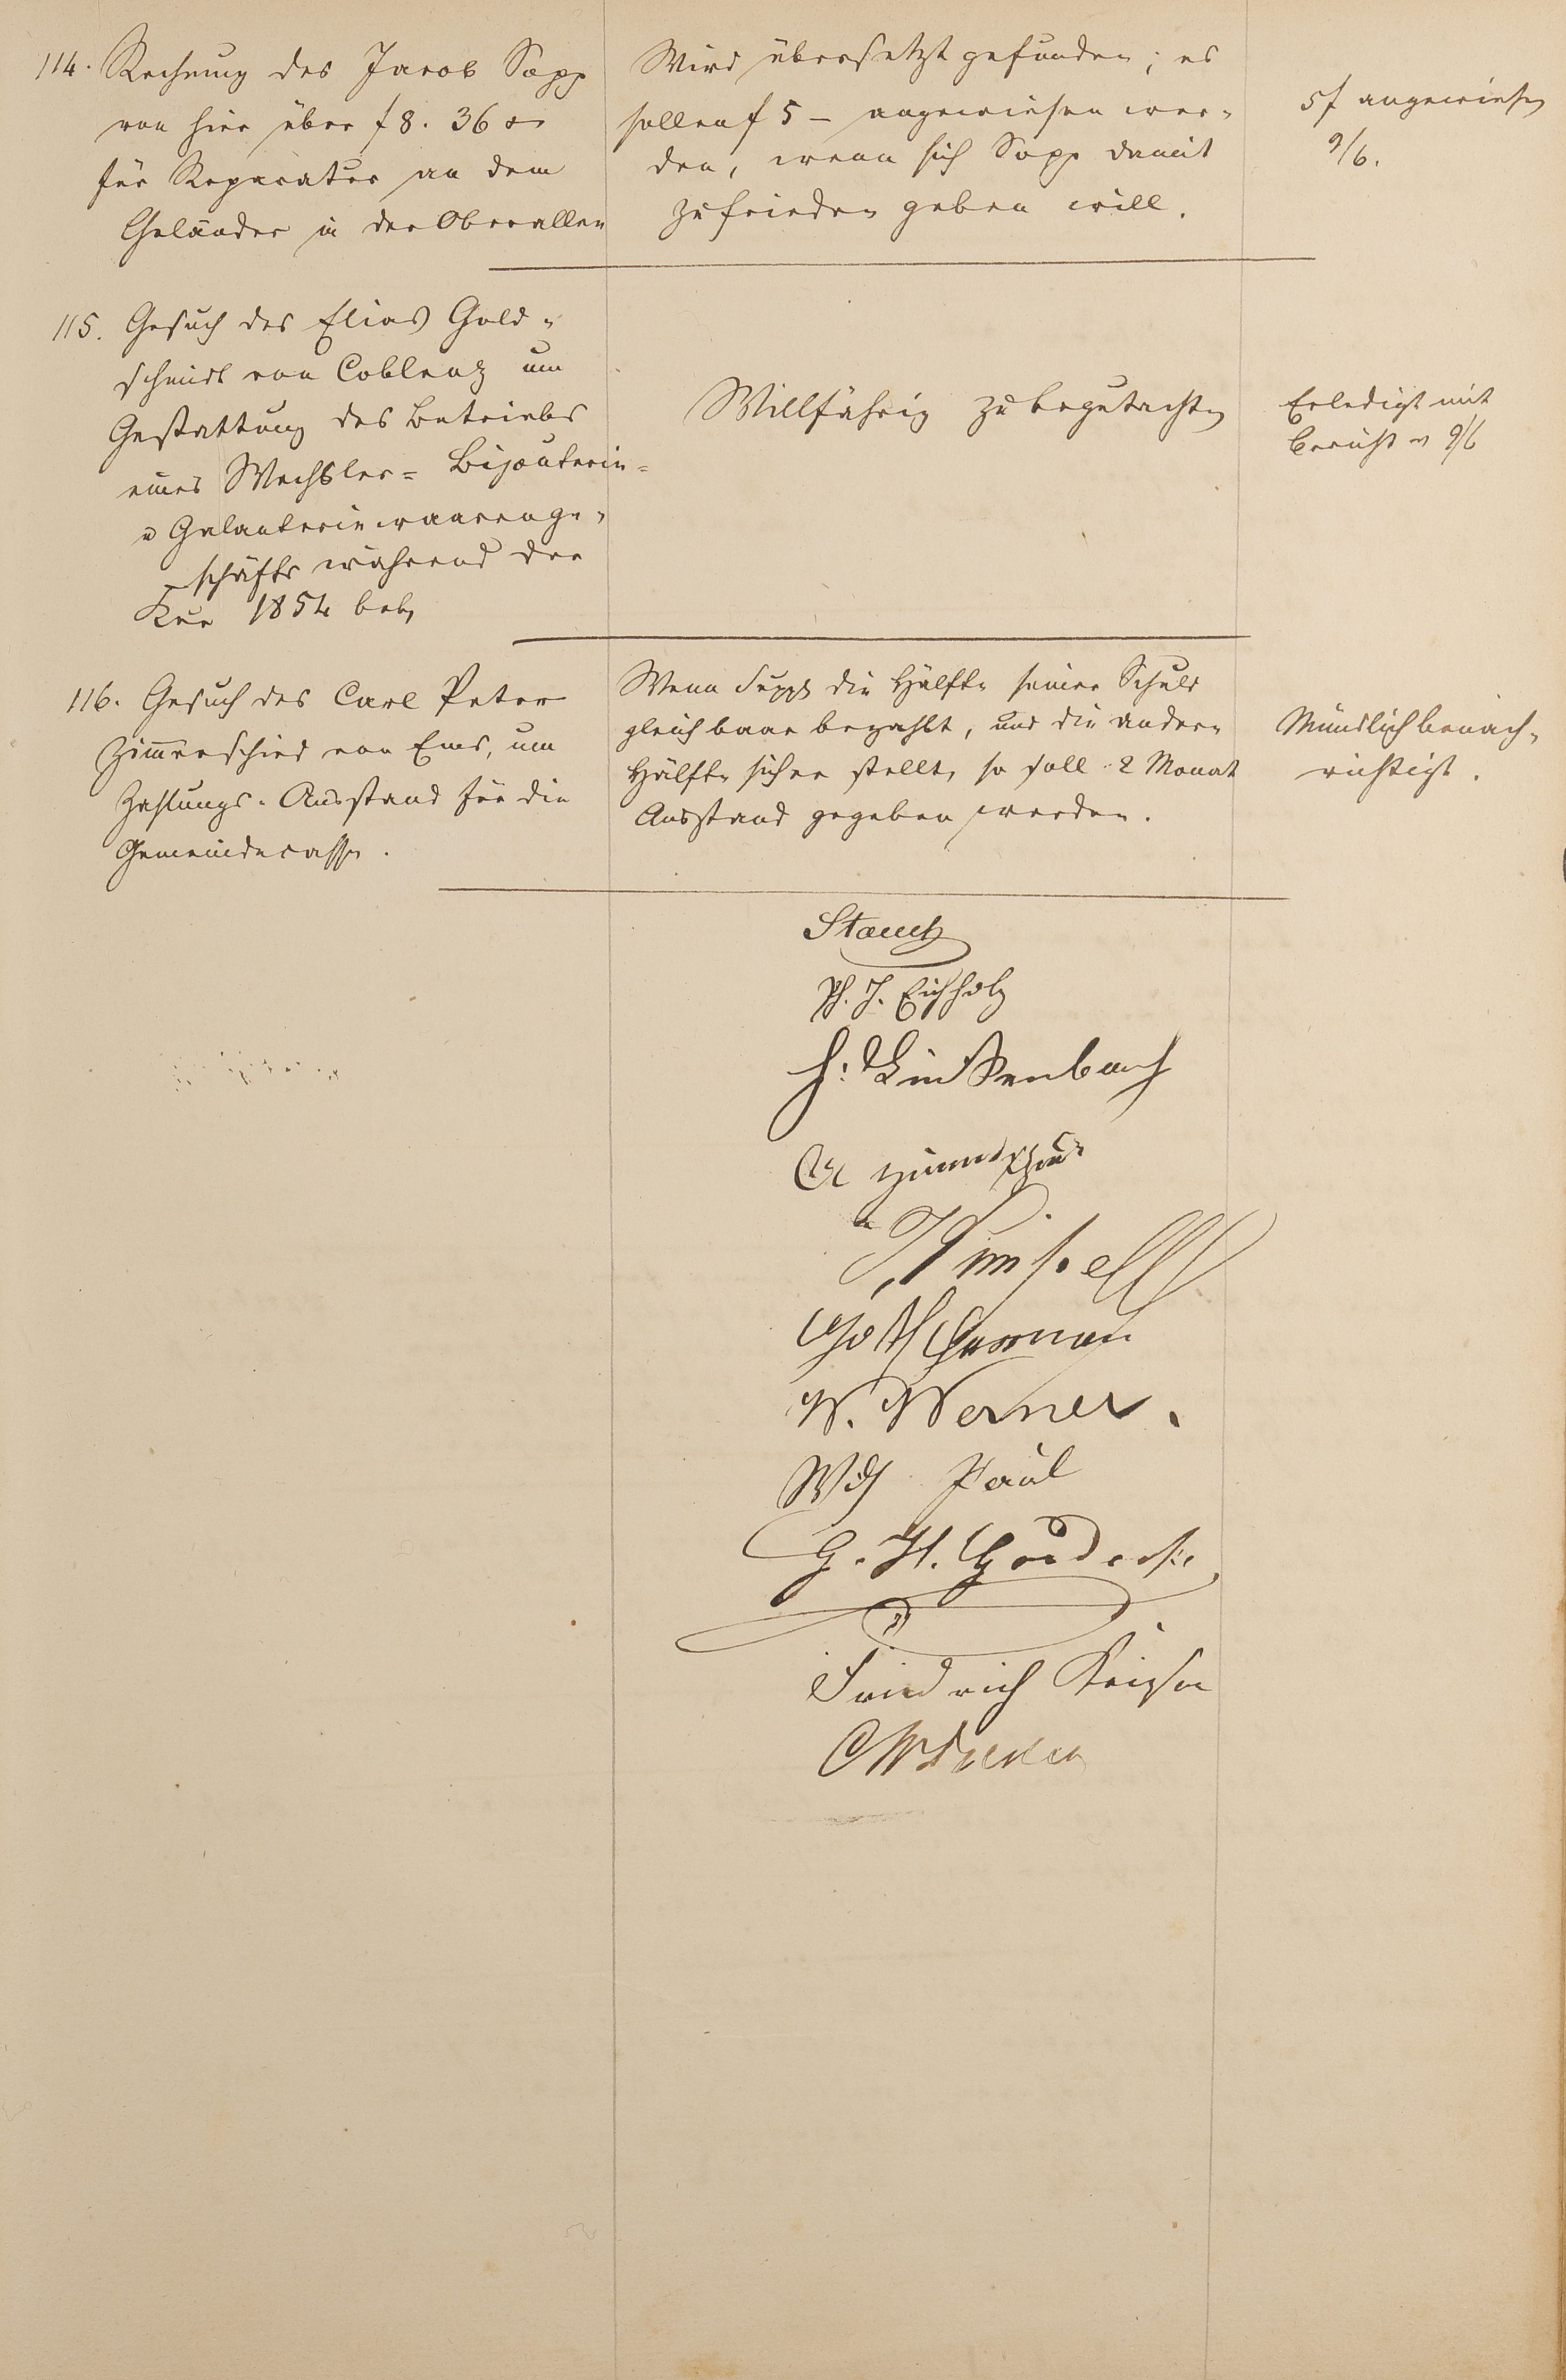 114. Rechnung des Jacob Sapp
von hier über f 8. 36 xr
für Reparatur an dem
Geländer in der Oberallee
Wird übersetzt gefunden; es
sollen f 5 – angewiesen wer-
den, wenn sich Sapp damit
zufrieden geben will.
5 f angewiesen
9/6.
115. Gesuch des Elias Gold-
schmidt von Coblenz um
Gestattung des Betriebs
eines Wechsler- Bijouterie-
u Galanteriewaarenge-
schäfts während der
Kur 1854 betr
Willfährig zu begutachten
Erledigt mit
Bericht v 9/6
116. Gesuch des Carl Peter
Zimmerschied von Ems, um
Zahlungs-Ausstand für die
Gemeindecasse.
Wenn Suppl die Hälfte seiner Schuld
gleich baar bezahlt, und die andere
Hälfte sicher stellt, so soll 2 Monat
Ausstand gegeben werden.
Mündlich benach-
richtigt.
Stauch
Ph. J. Eichholz
H. Linkenbach
W. Werner.
Wilh Paul
Friedrich